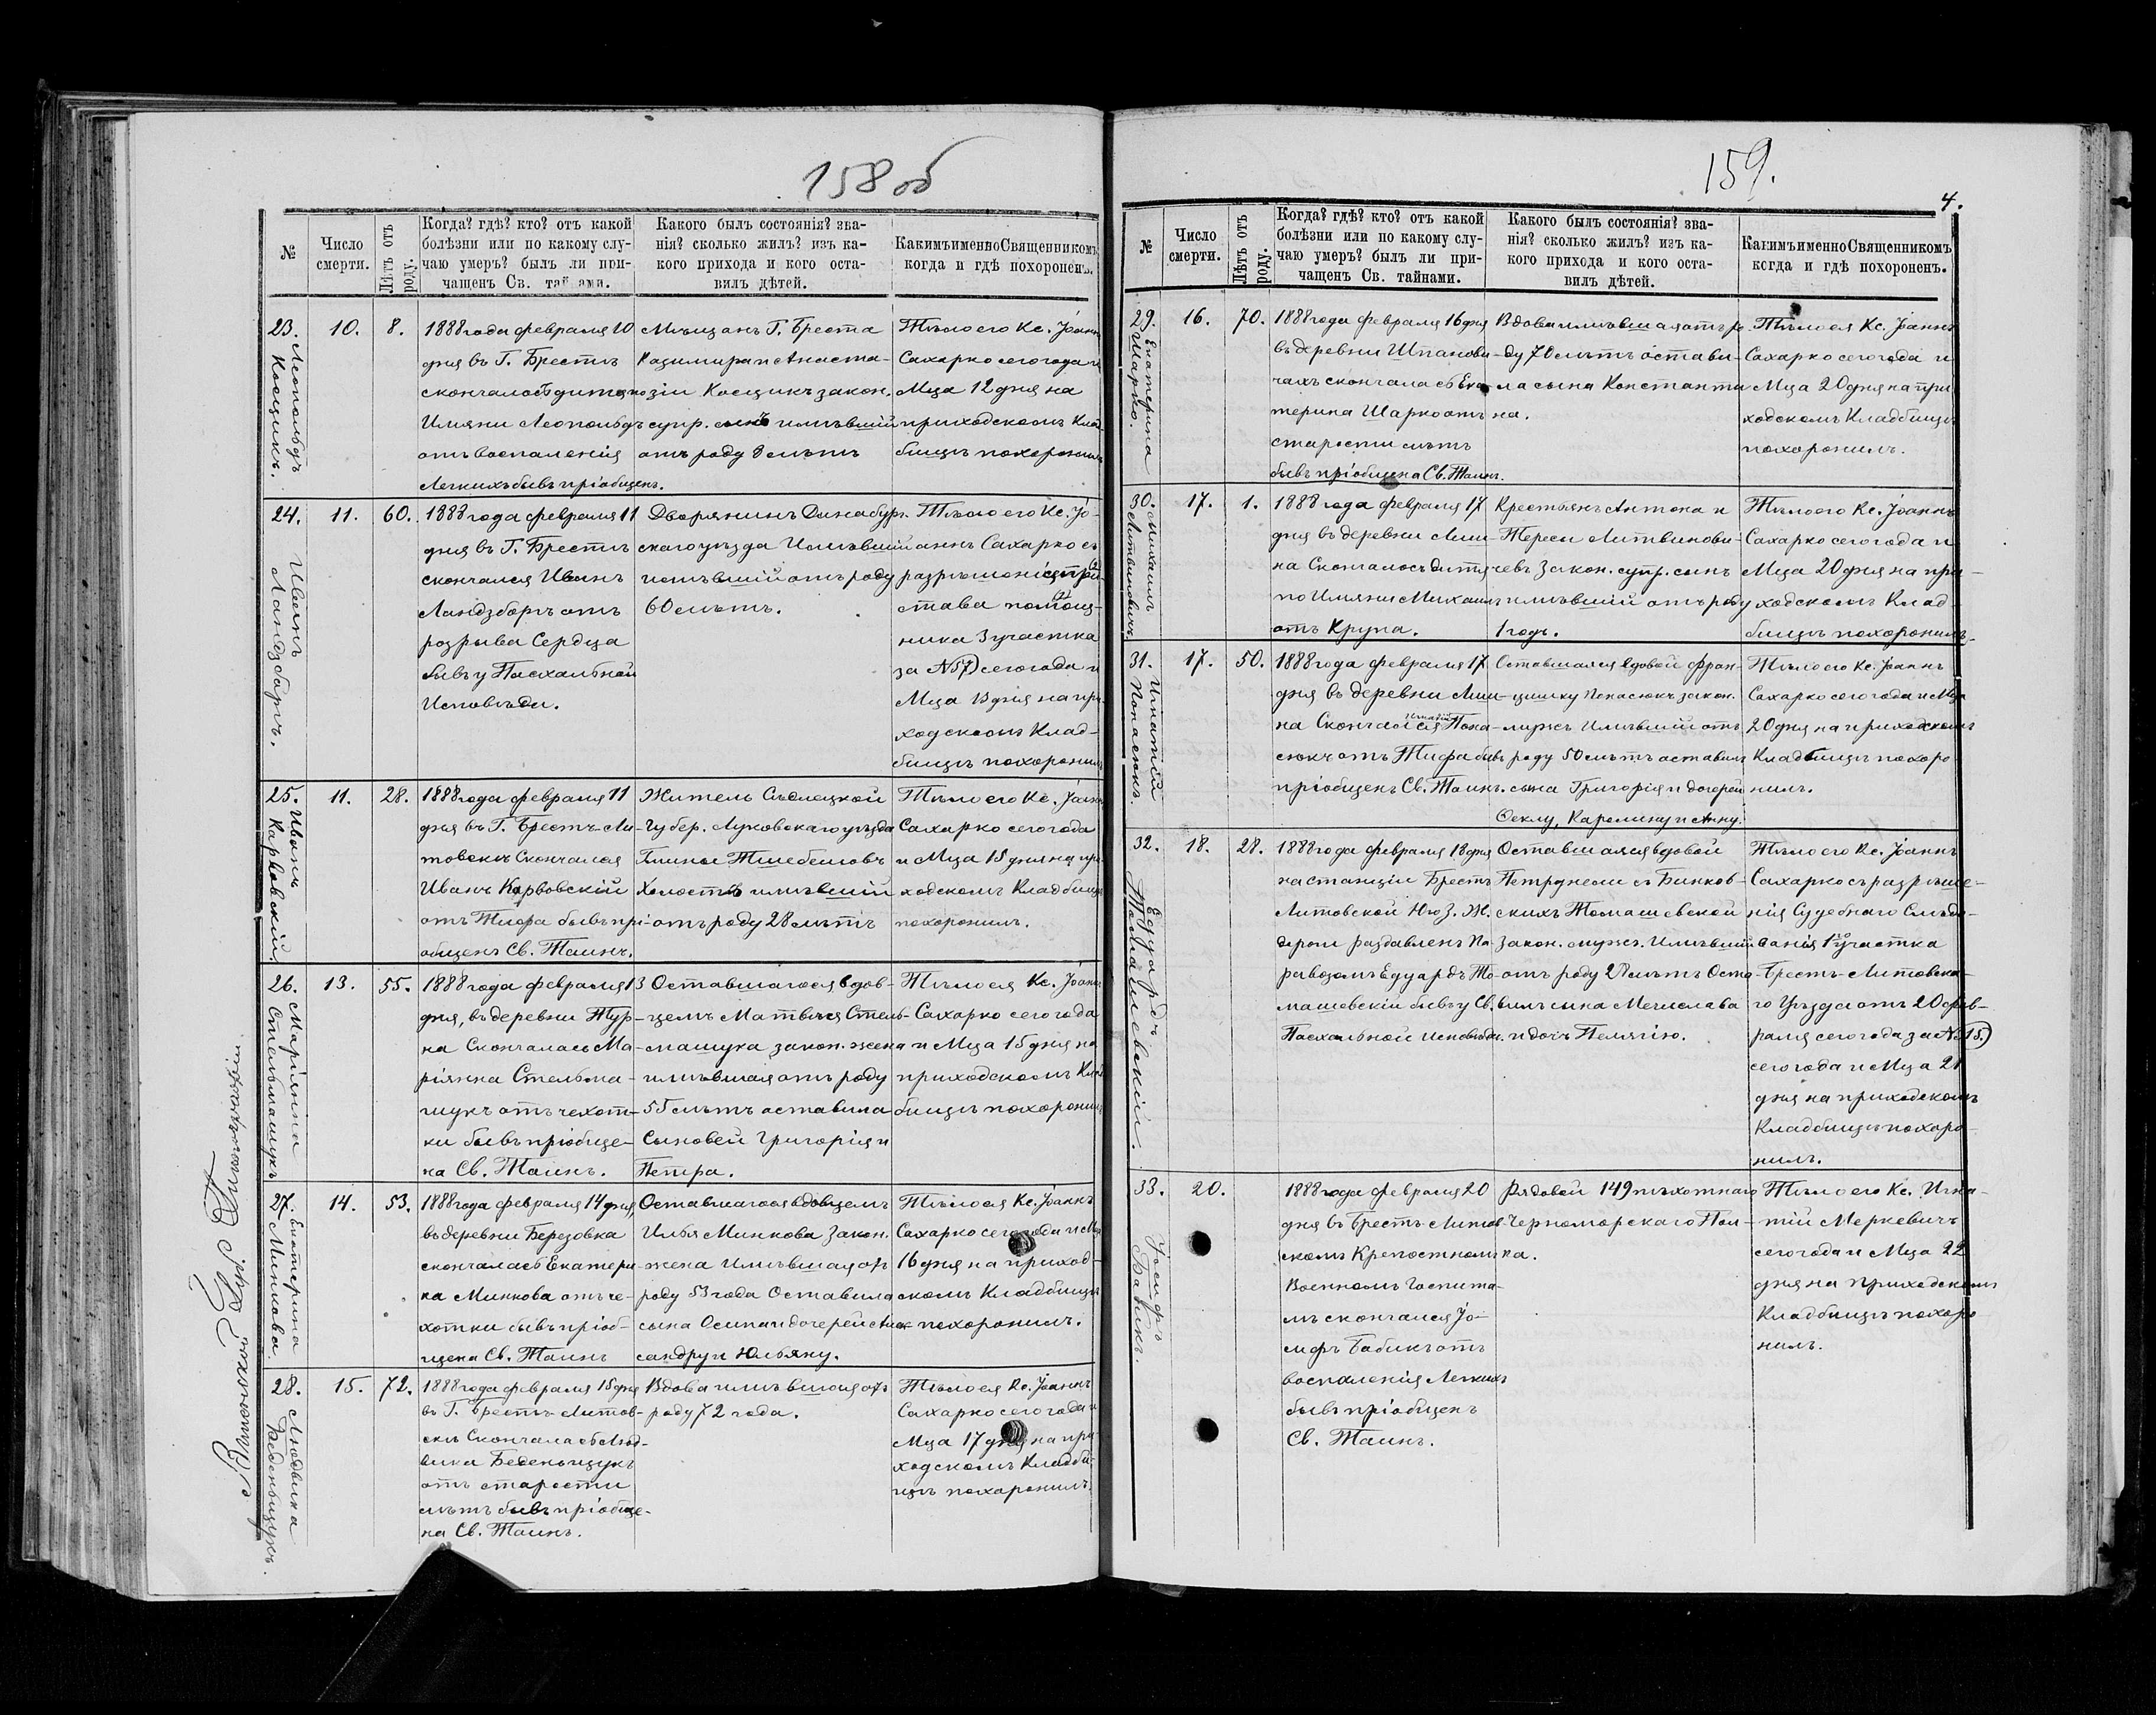 158 об
№
Число
смерти.
Лѣтъ отъ
роду.
Когда? гдѣ? кто? отъ какой
болѣзни или по какому слу-
чаю умеръ? былъ ли при-
чащенъ Св. тайнами.
Какого былъ состоянія? зва-
нія? сколько жилъ? изъ ка-
кого прихода и кого оста-
вилъ дѣтей.
Какимъ именно Священникомъ
когда и гдѣ похороненъ.
23.
Леопольдъ
Косцикъ.
10.
8.
1888 года февраля 10
дня въ Г. Брестѣ
скончалось дитя по
Имяни Леопольдъ
отъ воспаленія
Легкихъ бывъ пріобщенъ.
Мѣщанъ Г. Бреста
Казимира и Анаста-
зіи Косцикъ закон.
супр. сынъ имѣвшій
отъ роду 8 лѣтъ
Тѣло его Кс. Іоаннъ
Сахарко сего года и
Мца 12 дня на
приходскомъ Клад-
бищѣ похоронилъ
24.
Иванъ
Ландзбергъ.
11.
60.
1888 года февраля 11
дня въ Г. Брестѣ
скончался Иванъ
Ландзбергъ отъ
розрыва Сердца
бывъ у Пасхальной
Исповѣди.
Дворянинъ Динабург-
скаго уѣзда Имѣвшій
имѣвшій отъ роду
60 лѣтъ.
Тѣло его Кс. Іо-
аннъ Сахарко съ
разрѣшенія при-
става помощ-
ника 3 участка
за № 57) сего года и
Мца 13 дня на при
ходскомъ Клад-
бищѣ похоронилъ
25.
Иванъ
Карвовскій.
11.
28.
1888 года февраля 11
дня въ Г. Брестъ-Ли-
товскѣ Скончался
Иванъ Карвовскій
отъ Тифа бывъ прі-
общенъ Св. Таинъ.
Житель Сѣдлецкой
Губер. Луковскаго уѣзда
Гмины Тшебешовъ
Холостъ имѣвшій
отъ роду 28 лѣтъ
Тѣло его Кс. Іоаннъ
Сахарко сего года
и Мца 15 дня на при
ходскомъ Кладбищѣ
похоронилъ.
26.
Маріянна
Стельмашукъ
13.
55.
1888 года февраля 13
дня, въ деревни Тур-
на Скончалась Ма-
ріянна Стельма-
шукъ отъ чехот-
ки бывъ пріобще-
на Св. Таинъ.
Оставшагося вдов-
цемъ Матвѣя Стель-
машука закон. жена
имѣвшая отъ роду
55 лѣтъ оставила
Сыновей Григорія и
Петра.
Тѣло ея Кс. Іоаннъ
Сахарко сего года
и Мца 15 дня на
приходскомъ Клад
бищѣ похоронилъ
27.
Екатерина
Минкова.
14.
53.
1888 года февраля 14 дня,
въ деревни Березовка
скончалась Екатери-
на Минкова отъ че-
хотки бывъ пріоб-
щена Св. Таинъ
Оставшагося вдовцемъ
Илья Минкова Закон.
жена имѣвшая отъ
роду 53 года Оставила
сына Осипа и дочерей Алек
сандру и Юльяну.
Тѣло ея Кс. Іоаннъ
Сахарко сего года и Мца
16 дня на приход-
скомъ Кладбищѣ
похоронилъ.
28.
Людвика
Беденьщукъ
15.
72.
1888 года февраля 15 дня
въ Г. Брестъ-Литов-
скѣ Скончалась Люд-
вика Беденьщукъ
отъ старости
лѣтъ бывъ пріобще-
на Св. Таинъ.
Вдова имѣвшая отъ
роду 72 года.
Тѣло ея Кс. Іоаннъ
Сахарко сего года и
Мца 17 дня на при
ходскомъ Кладби-
щѣ похоронилъ.
159.
4.
№
Число
смерти.
Лѣтъ отъ
роду.
Когда? гдѣ? кто? отъ какой
болѣзни или по какому слу-
чаю умеръ? былъ ли при-
чащенъ Св. тайнами.
Какого былъ состоянія? зва-
нія? сколько жилъ? изъ ка-
кого прихода и кого оста-
вилъ дѣтей.
Какимъ именно Священникомъ
когда и гдѣ похороненъ.
29.
Екатерина
Шарко.
16.
70.
1888 года февраля 16 дня
въ деревни Шпанови-
чахъ скончалась Ека
терина Шарко отъ
старости лѣтъ
бывъ пріобщена Св. Таинъ.
Вдова имѣвшая отъ ро
ду 70 лѣтъ остави-
ла сына Константи
на.
Тѣло ея Кс. Іоаннъ
Сахарко сего года и
Мца 20 дня на при
ходскомъ Кладбищѣ
похоронилъ.
30.
Михаилъ
Литвиновичъ
17.
1.
1888 года февраля 17
дня въ деревни Лыщи-
на Скончалось дитя
по Имяни Михаилъ
отъ Крупа.
Крестьянъ Антона и
Тересы Литвинови-
чевъ Закон. супр. сынъ
имѣвшій отъ роду
1 годъ.
Тѣло его Кс. Іоаннъ
Сахарко сего года и
Мца 20 дня на при-
ходскомъ Клад-
бищѣ похоронилъ.
31.
Игнатій
Понасюкъ.
17.
50.
1888 года февраля 17
дня въ деревни Лыщи-
на Скончался Игнатій Пона-
сюкъ отъ Тифа бывъ
пріобщенъ Св. Таинъ.
Оставшаяся вдовой Фран-
цишку Понасюкъ закон.
мужъ Имѣвшій отъ
роду 50 лѣтъ оставилъ
сына Григорія и дочерей
Феклу, Каролину и Анну.
Тѣло его Кс. Іоаннъ
Сахарко сего года и Мца
20 дня на приходскомъ
Кладбищѣ похоро
нилъ.
32.
Едуардъ
Томашевскій.
18.
28.
1888 года февраля 18 дня
на станціи Брестъ
Литовской Юго З. Ж.
дороги раздавленъ Па
равозомъ Едуардъ То-
машевскій бывъ у Св.
Пасхальной исповѣди.
Оставшаяся вдовой
Петрунели съ Бинков-
скихъ Томашевской
Закон. мужъ. Имѣвшій
отъ роду 28 лѣтъ Оста-
вилъ сына Мечислава
и дочь Пелягію.
Тѣло его Кс. Іоаннъ
Сахарко съ разрѣше-
нія Судебнаго Слѣдо-
ванія 1го участка
Брестъ-Литовска-
го Уѣзда отъ 20 фев-
раля сего года за № 15.)
сего года и Мца 21
дня на приходскомъ
Кладбищѣ похоро-
нилъ.
33.
Іосифъ
Бабикъ.
20.
1888 года февраля 20
дня въ Брестъ-Литов
скомъ Крепостномъ
Военномъ Госпита-
лѣ скончался Іо-
сифъ Бабикъ отъ
воспаленія Легкихъ
бывъ пріобщенъ
Св. Таинъ.
Рядовой 149 пѣхотнаго
Черноморскаго Пол-
ка.
Тѣло его Кс. Игна-
тій Меркевичъ
сего года и Мца 22
дня на приходскомъ
Кладбищѣ похоро
нилъ.